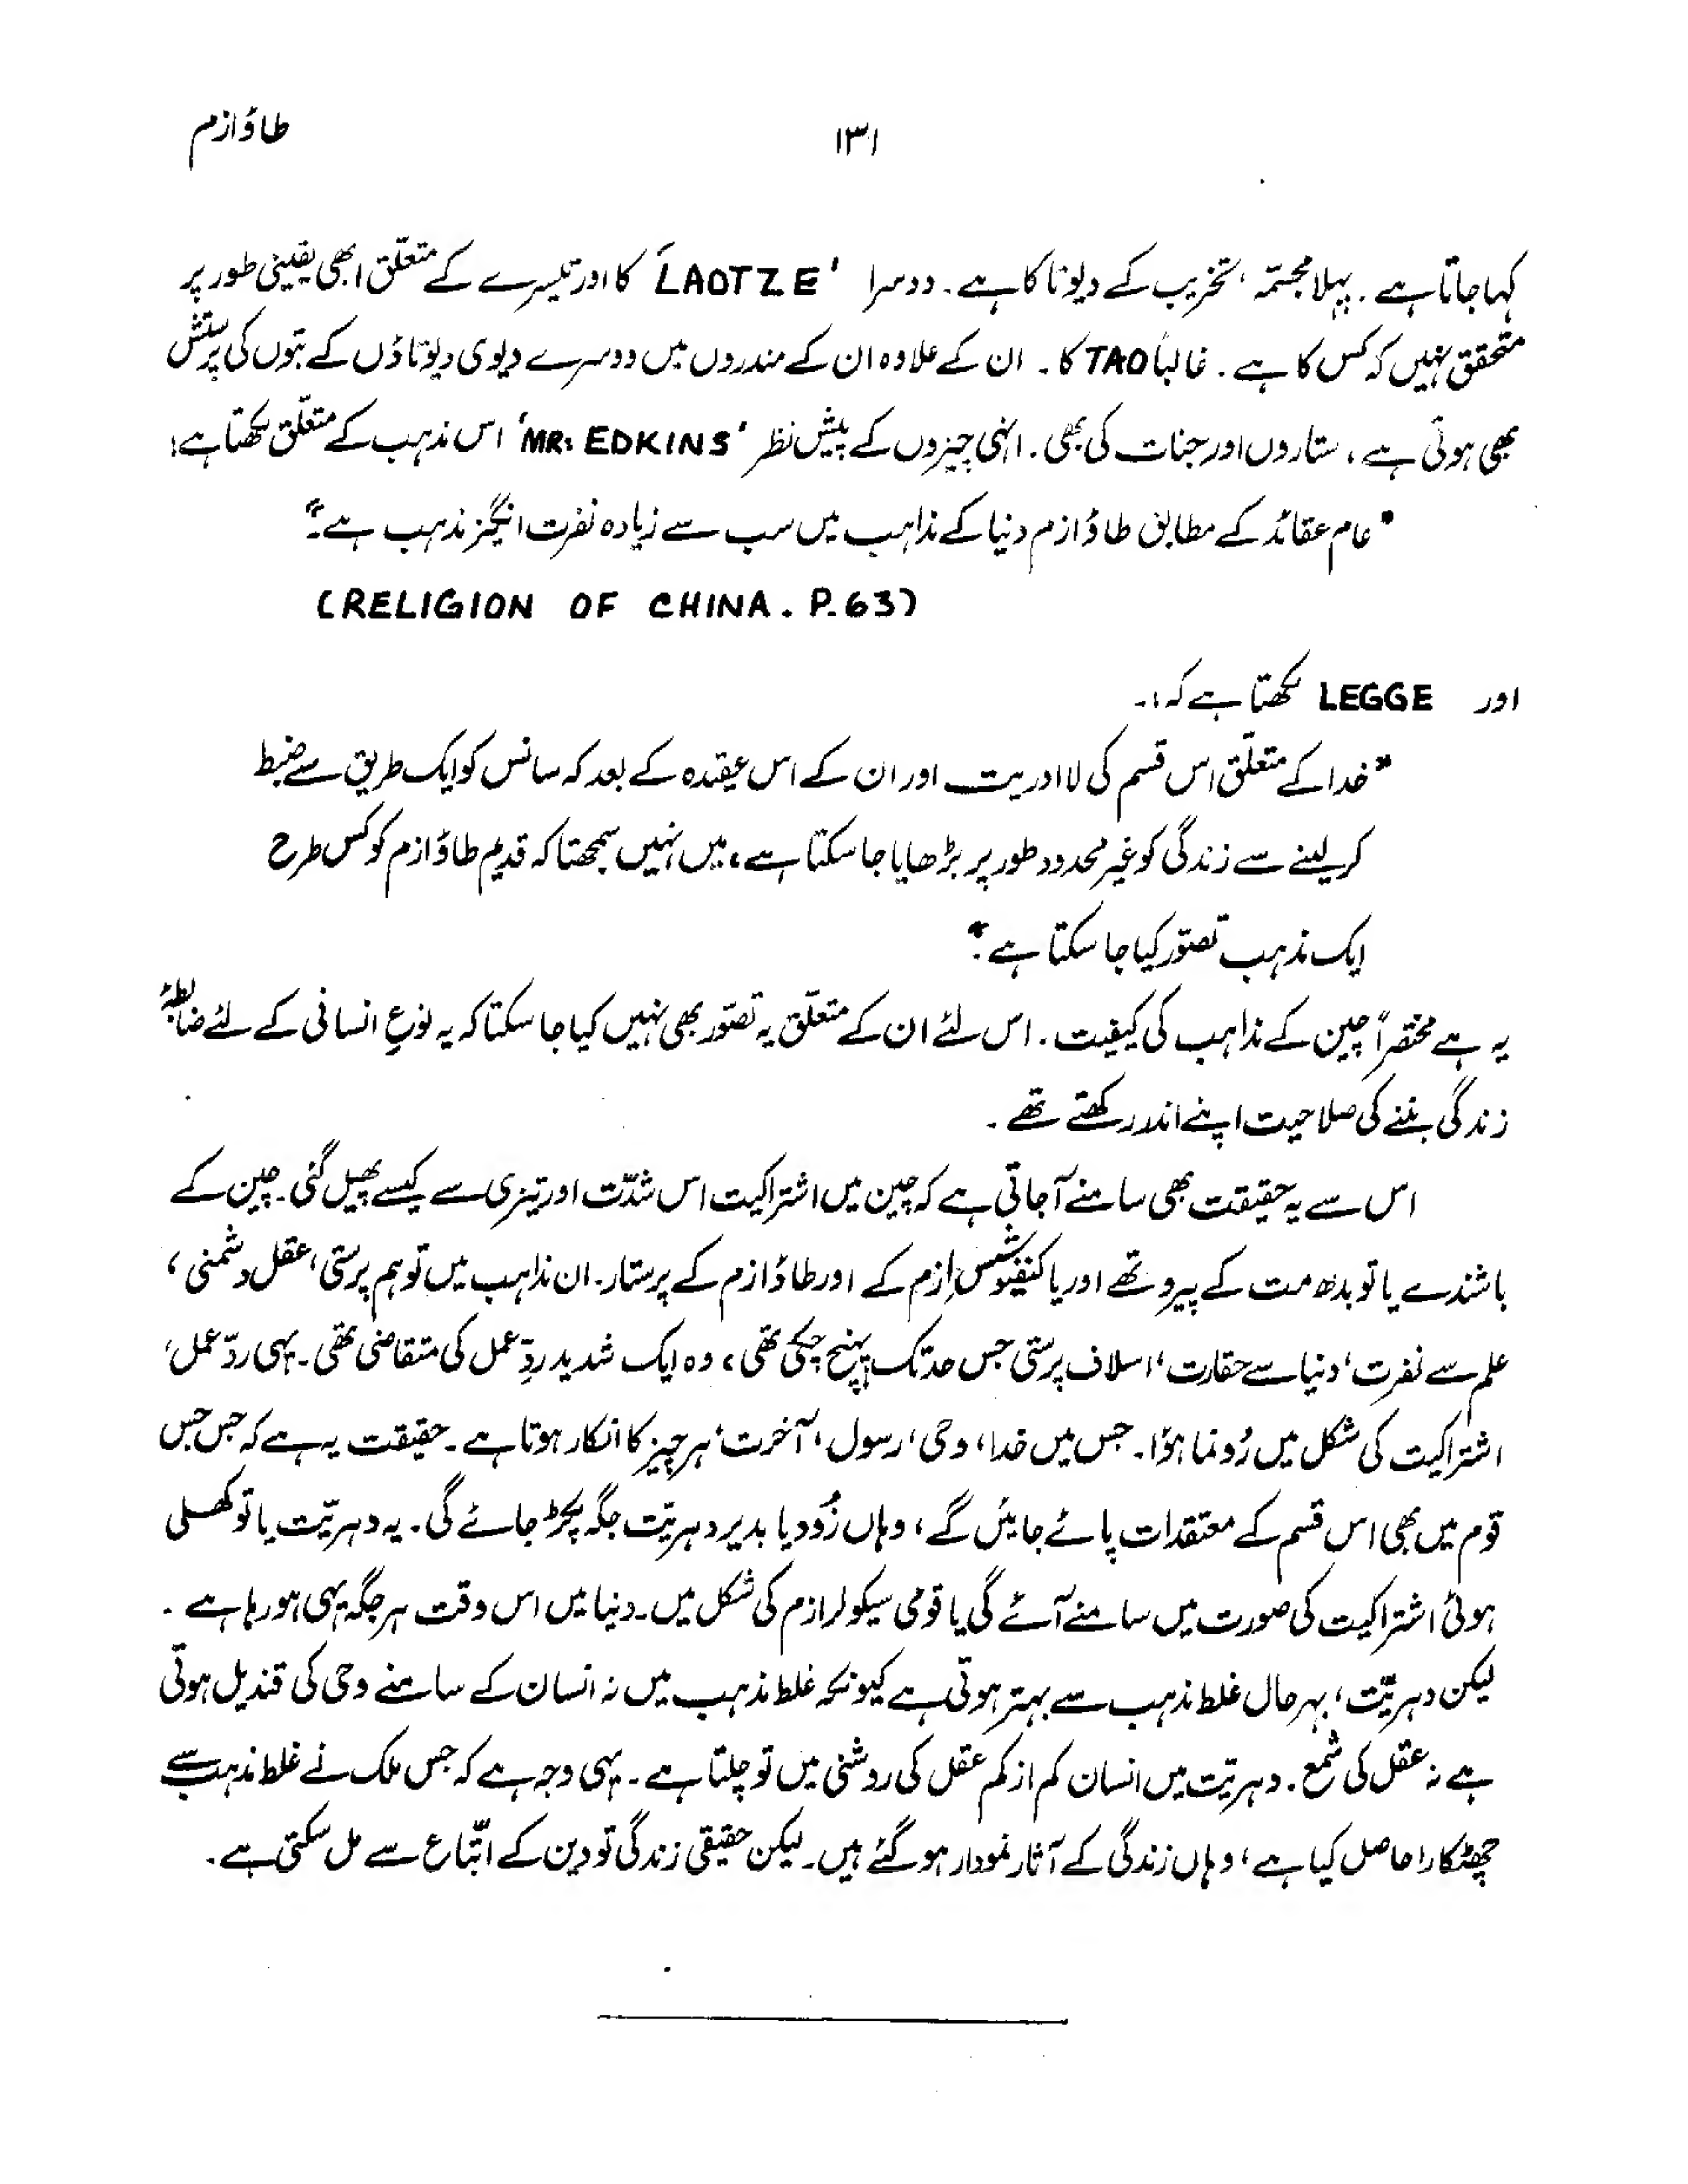 طاؤازم
۱۳۱
کہا جاتا ہے۔ پہلا مجسّمہ، تخریب کے دیوتا کا ہے۔ دوسرا 'LAOTZE' کا اور تیسرے کے متعلّق ابھی یقینی طور پر
متحقق نہیں کہ کس کا ہے۔ غالباً TAO کا۔ ان کے علاوہ ان کے مندروں میں دوسرے دیوی دیوتاؤں کے بتوں کی پرستش
بھی ہوتی ہے، ستاروں اور جنات کی بھی۔ انہی چیزوں کے پیشِ نظر 'MR. EDKINS' اس مذہب کے متعلّق لکھتا ہے؛
"عام عقائد کے مطابق طاؤازم دنیا کے مذاہب میں سب سے زیادہ نفرت انگیز مذہب ہے۔"
(RELIGION OF CHINA. P.63)
اور LEGGE لکھتا ہے کہ:۔
"خدا کے متعلّق اس قسم کی لاادریت اور ان کے اس عقیدہ کے بعد کہ سانس کو ایک طریق سے ضبط
کر لینے سے زندگی کو غیر محدود طور پر بڑھایا جا سکتا ہے، میں نہیں سمجھتا کہ قدیم طاؤازم کو کس طرح
ایک مذہب تصوّر کیا جا سکتا ہے۔"
یہ ہے مختصراً چین کے مذاہب کی کیفیت۔ اس لئے ان کے متعلّق یہ تصوّر بھی نہیں کیا جا سکتا کہ یہ نوعِ انسانی کے لئے ضابطۂ
زندگی بننے کی صلاحیت اپنے اندر رکھتے تھے۔
اس سے یہ حقیقت بھی سامنے آ جاتی ہے کہ چین میں اشتراکیت اس شدّت اور تیزی سے کیسے پھیل گئی۔ چین کے
باشندے یا تو بدھ مت کے پیرو تھے اور یا کنفیوشس ازم کے اور طاؤازم کے پرستار۔ ان مذاہب میں توہم پرستی، عقل دشمنی،
علم سے نفرت، دنیا سے حقارت، اسلاف پرستی جس حد تک پہنچ چکی تھی، وہ ایک شدید ردِّ عمل کی متقاضی تھی۔ یہی ردِّ عمل،
اشتراکیت کی شکل میں رُونما ہؤا۔ جس میں خدا، وحی، رسول، آخرت، ہر چیز کا انکار ہوتا ہے۔ حقیقت یہ ہے کہ جس جس
قوم میں بھی اس قسم کے معتقدات پائے جائیں گے، وہاں زُود یا بدیر دہریّت جگہ پکڑ جائے گی۔ یہ دہریّت یا تو کھلی
ہوئی اشتراکیت کی صورت میں سامنے آئے گی یا قومی سیکولرازم کی شکل میں۔ دنیا میں اس وقت ہر جگہ یہی ہو رہا ہے۔
لیکن دہریّت، بہرحال غلط مذہب سے بہتر ہوتی ہے کیونکہ غلط مذہب میں نہ انسان کے سامنے وحی کی قندیل ہوتی
ہے نہ عقل کی شمع۔ دہریّت میں انسان کم از کم عقل کی روشنی میں تو چلتا ہے۔ یہی وجہ ہے کہ جس ملک نے غلط مذہب سے
چھٹکارا حاصل کیا ہے، وہاں زندگی کے آثار نمودار ہو گئے ہیں۔ لیکن حقیقی زندگی تو دین کے اتّباع سے مل سکتی ہے۔